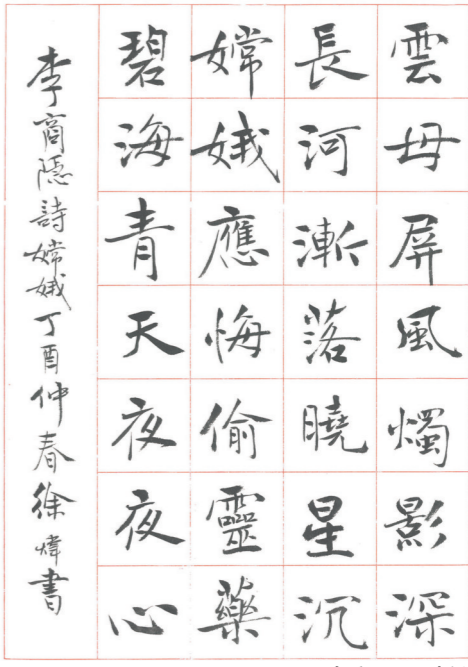 雲母屏風燭影深
長河漸落曉星沉
嫦娥應悔偷靈藥
碧海青天夜夜心
李商隱詩嫦娥丁酉仲春徐煒書